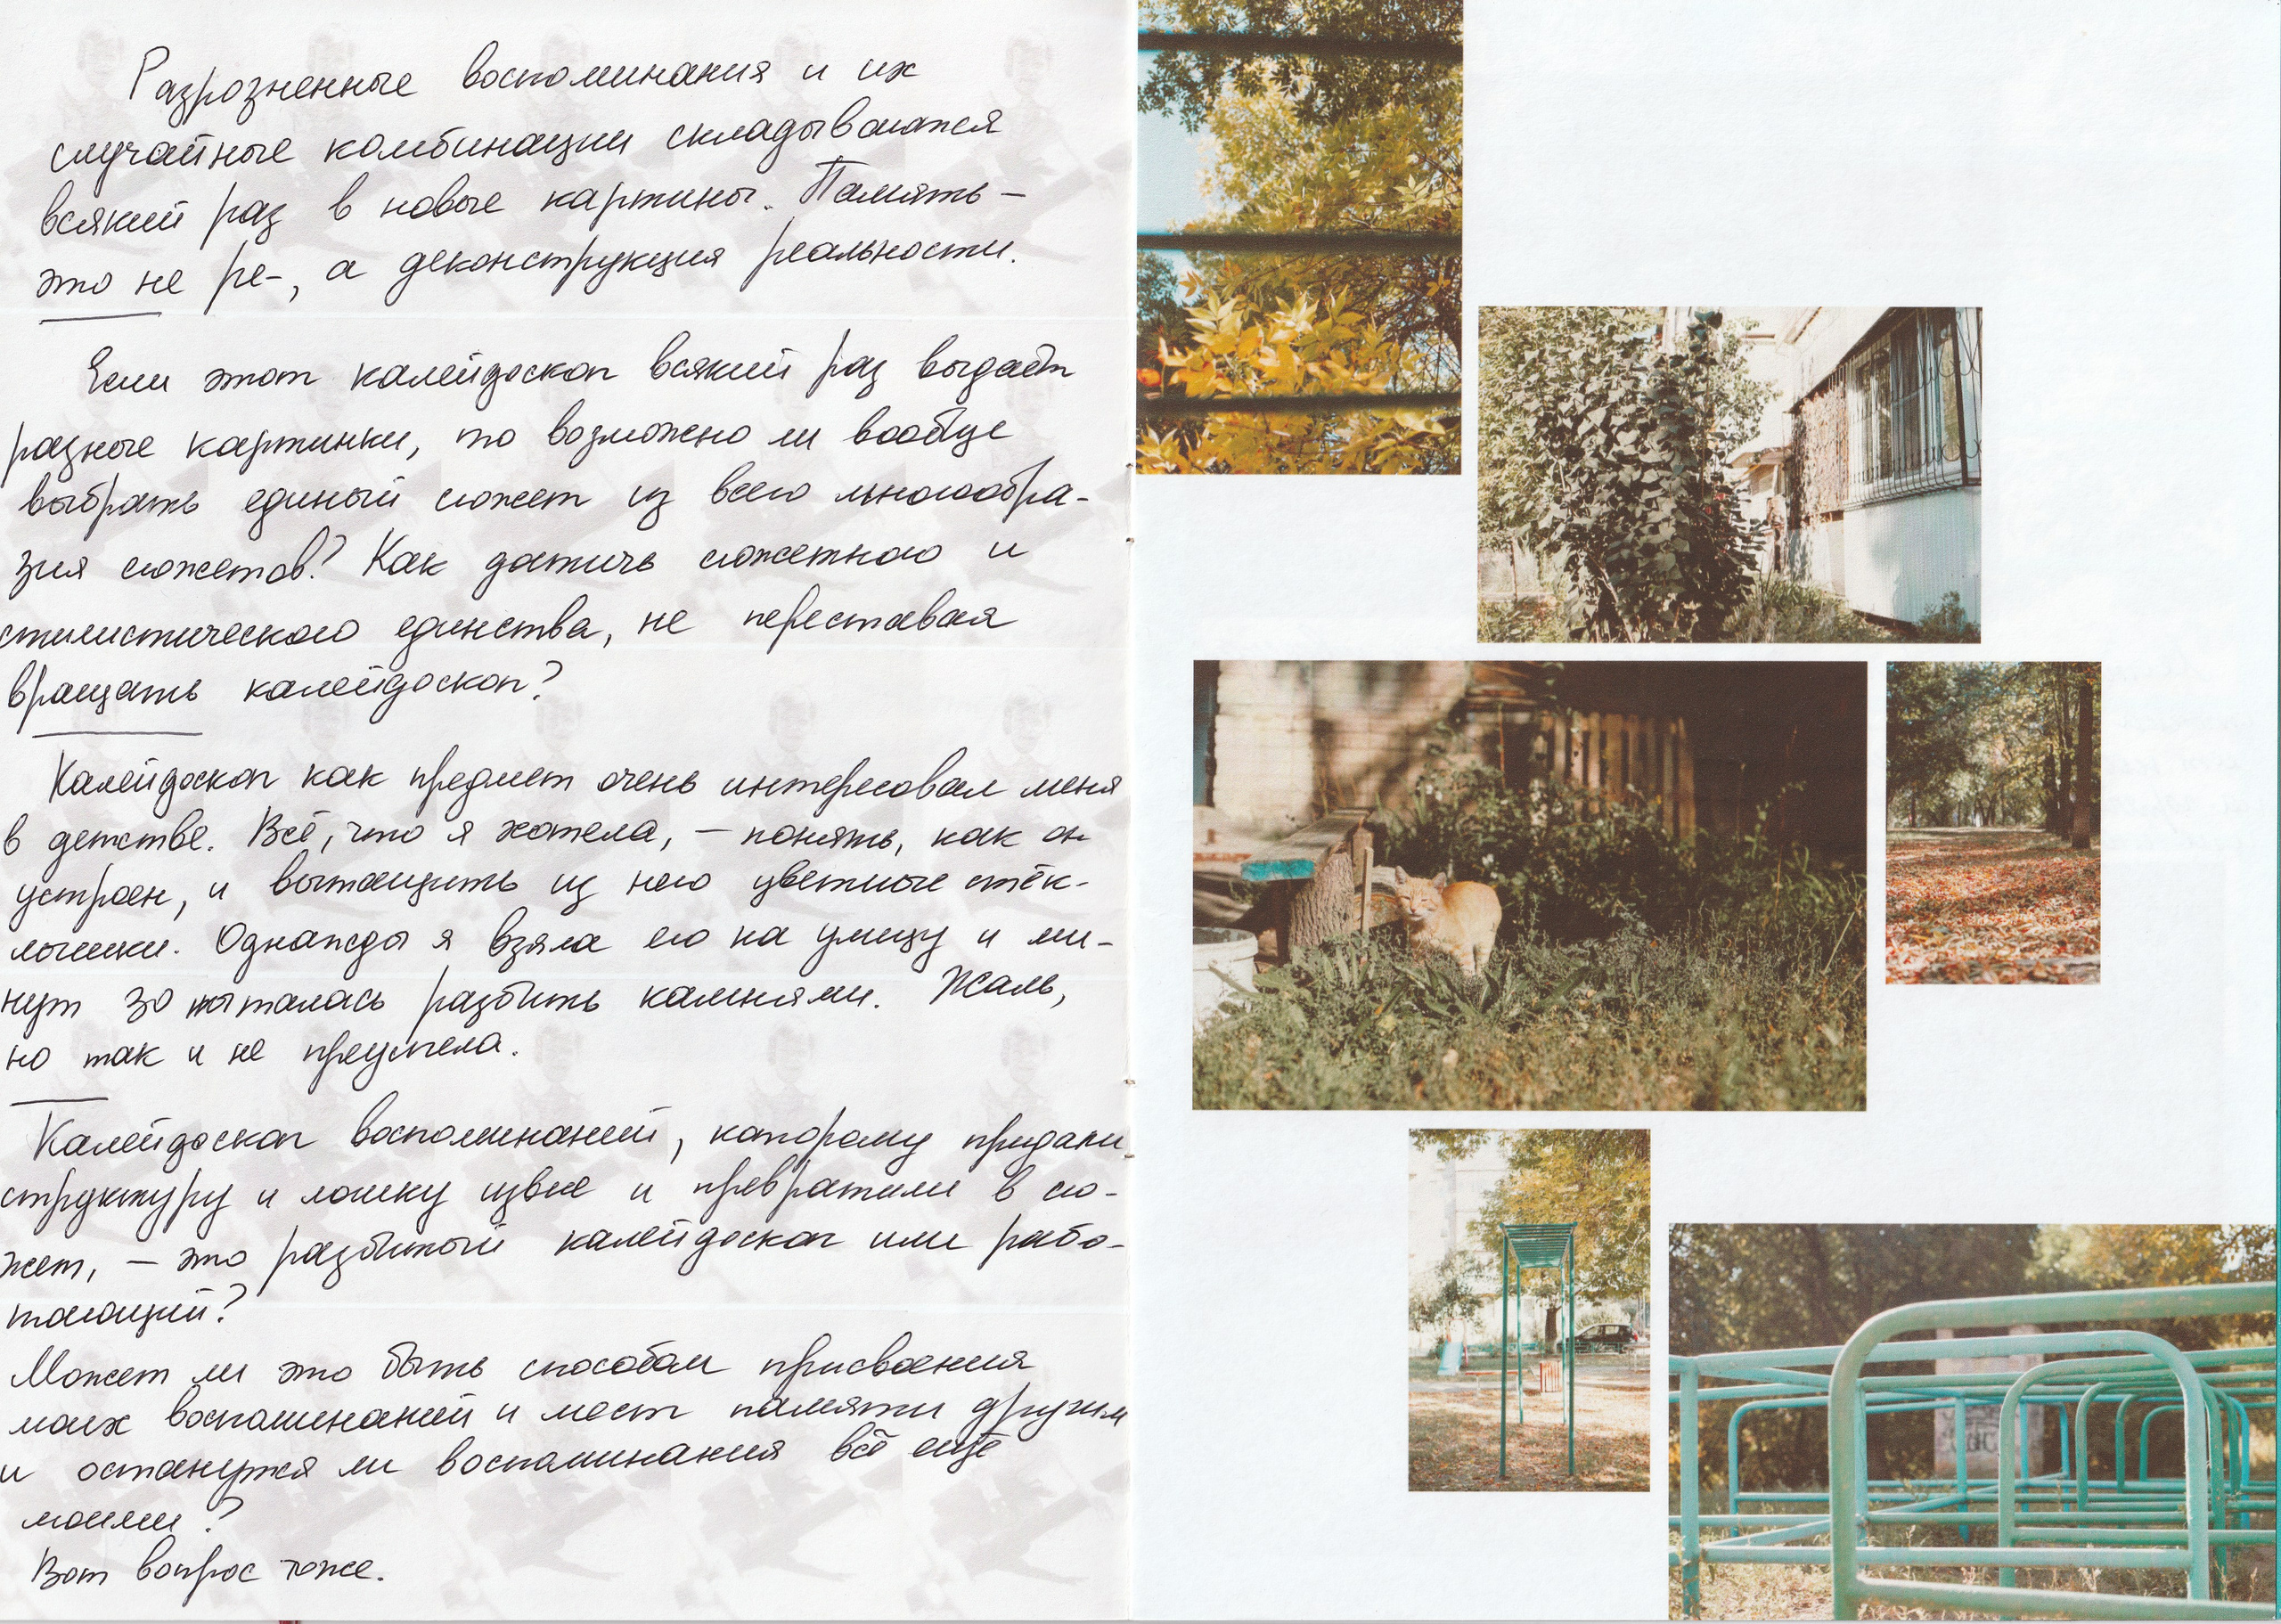 Разрозненные воспоминания и их
случайные комбинации складываются
всякий раз в новые картины. Память –
это не ре-, а деконструкция реальности.
Если этот калейдоскоп всякий раз выдаёт
разные картинки, то возможно ли вообще
выбрать единый сюжет из всего многообра-
зия сюжетов? Как достичь сюжетного и
стилистического единства, не переставая
вращать калейдоскоп?
Калейдоскоп как предмет очень интересовал меня
в детстве. Всё, что я хотела, – понять, как он
устроен, и вытащить из него цветные стёк-
лышки. Однажды я взяла его на улицу и ми-
нут 30 пыталась разбить камнями. Жаль,
но так и не преуспела.
Калейдоскоп воспоминаний, которому придали
структуру и логику извне и превратили в сю-
жет, – это разбитый калейдоскоп или рабо-
тающий?
Может ли это быть способом присвоения
моих воспоминаний и мест памяти другим
и останутся ли воспоминания всё ещё
моими?
Вот вопрос тоже.